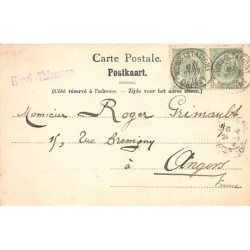 Carte Postale.
Postkaart.
(Côté réservé à l'adresse. - Zijde voor het adres alleen.)
Monsieur Roger Grimault
15, Rue
à Angers
France